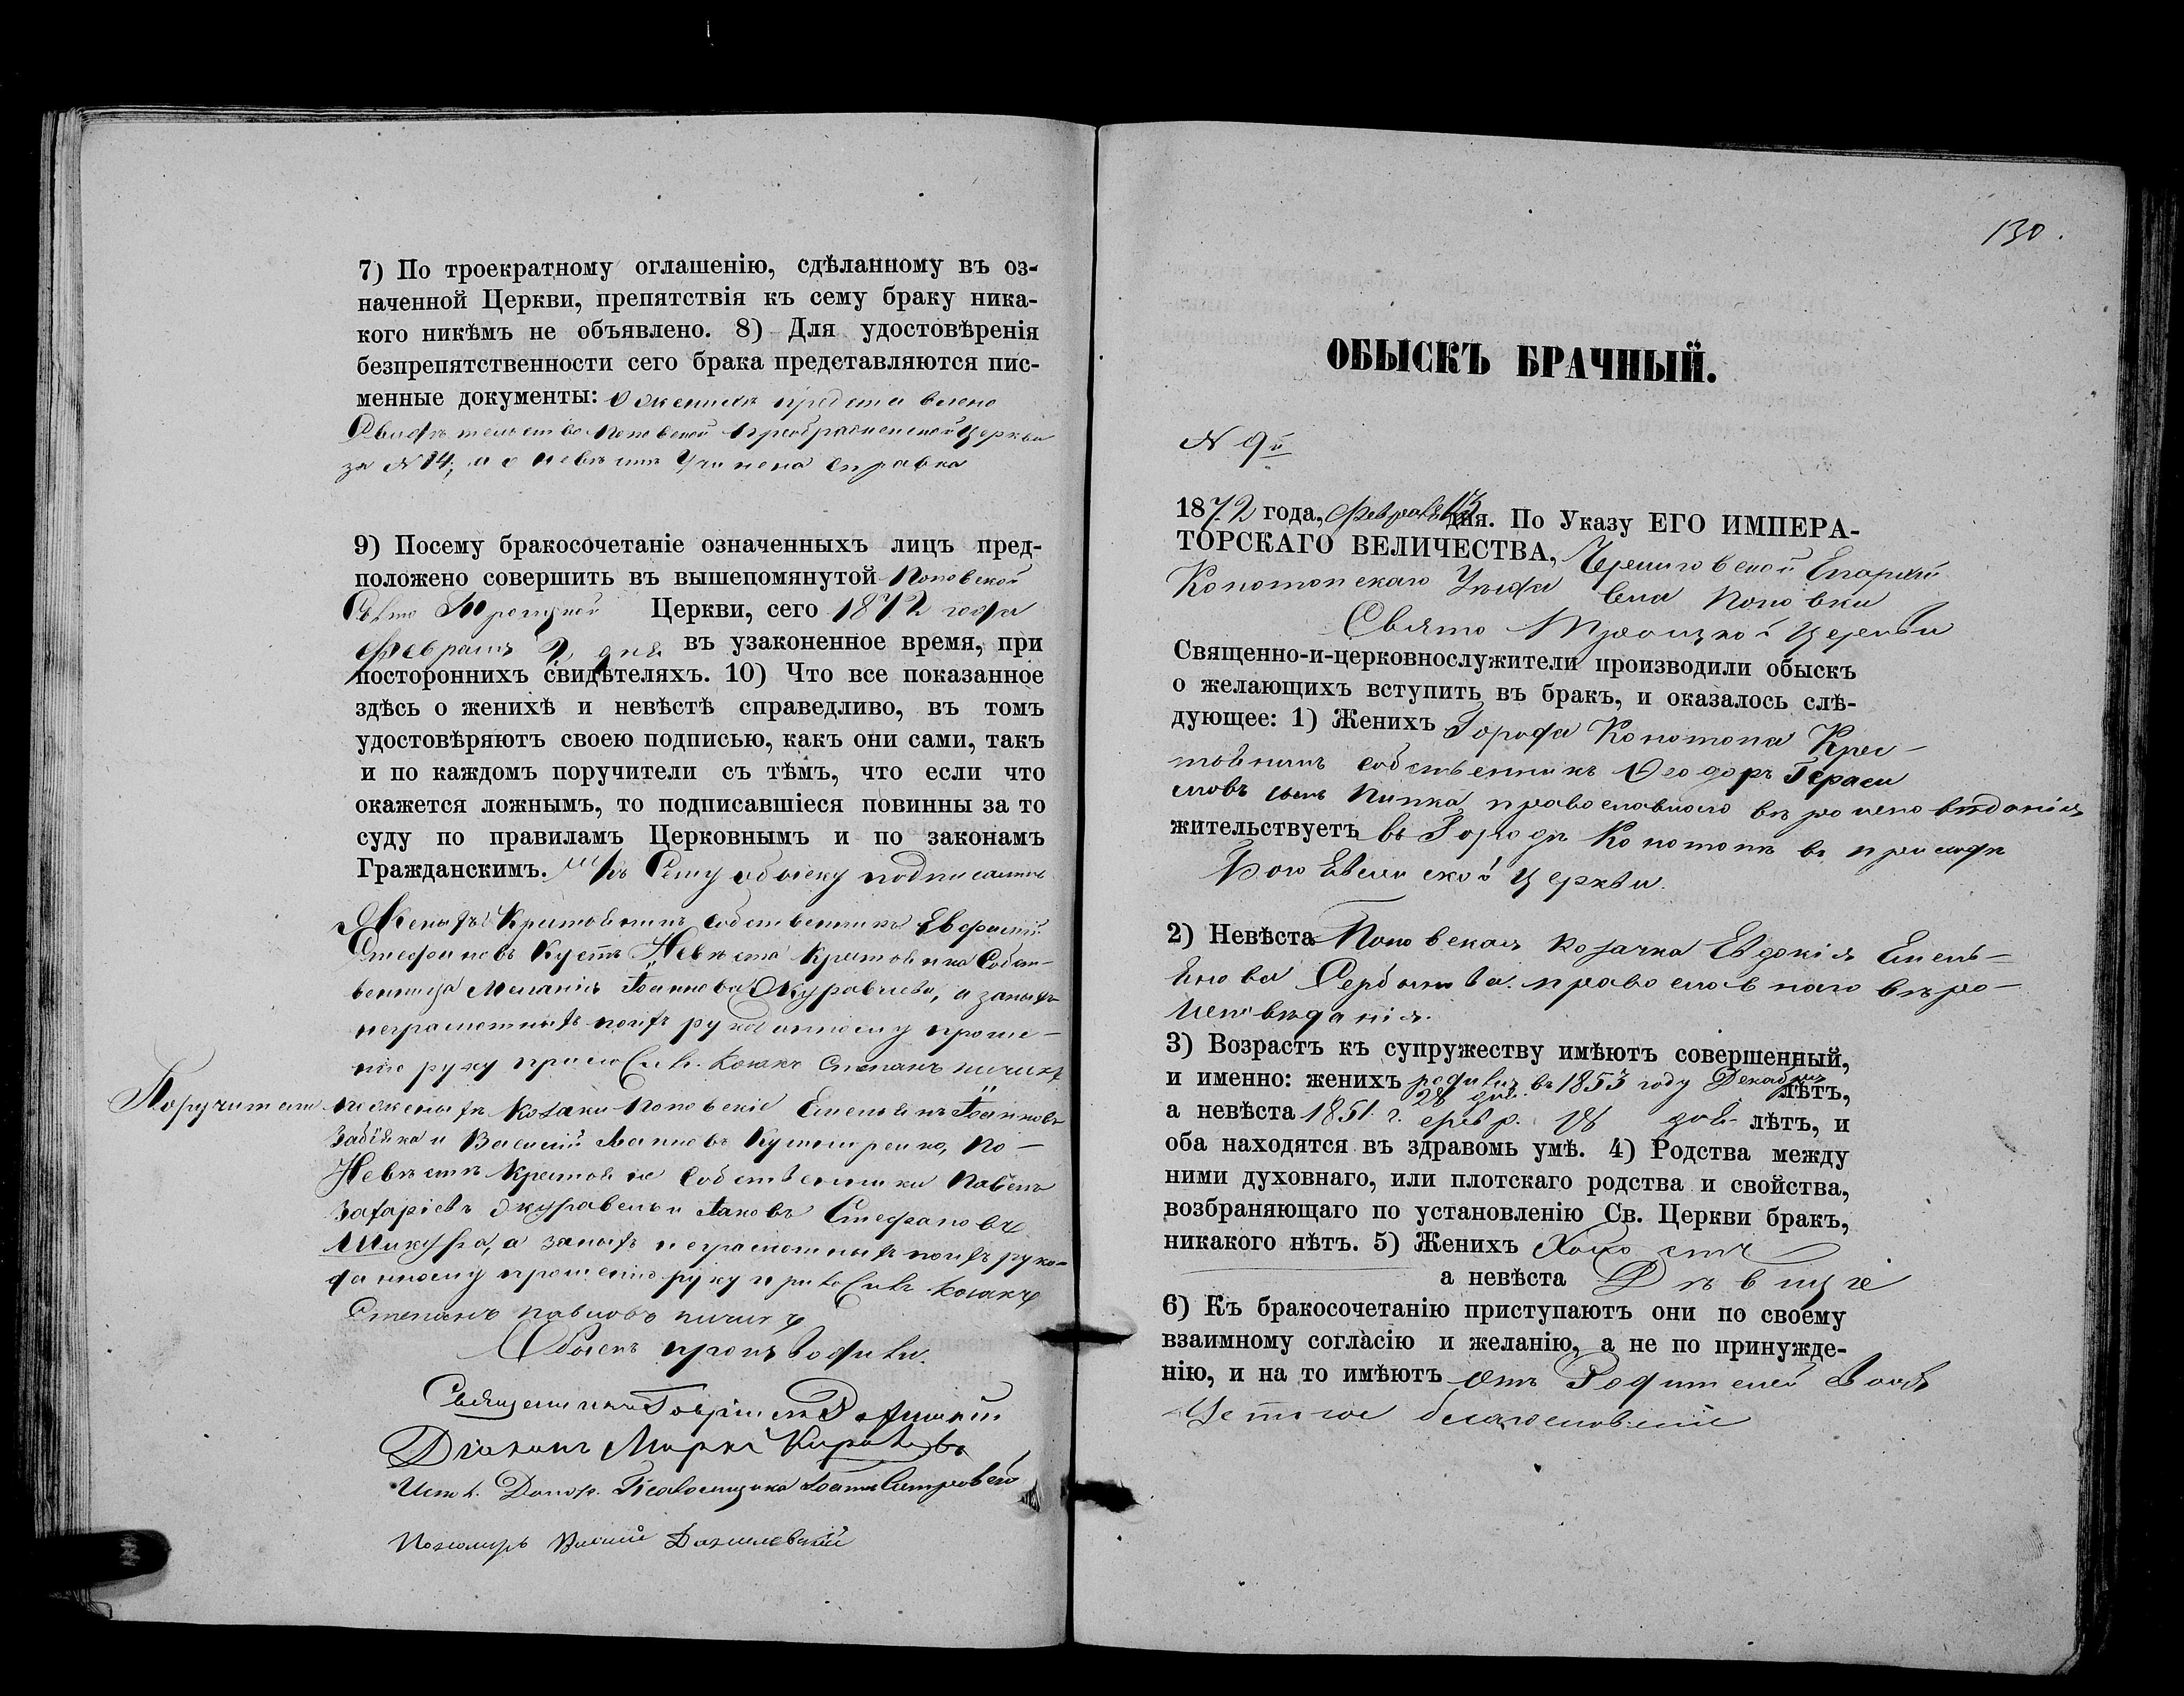 7) По троекратному оглашенію, сдѣланному въ оз-
наченной Церкви, препятствія къ сему браку ника-
кого никѣмъ не объявлено. 8) Для удостовѣренія
безпрепятственности сего брака представляются пис-
менные документы: О женихѣ представлено
Свидѣтельство Поповской Преображенской Церкви
за № 14; а о невѣстѣ Учинена справка
9) Посему бракосочетаніе означенныхъ лицъ пред-
положено совершить въ вышепомянутой Поповской
Свято Троицкой Церкви, сего 1872 года
Февраля 2 дня въ узаконенное время, при
постороннихъ свидѣтеляхъ. 10) Что все показанное
здѣсь о женихѣ и невѣстѣ справедливо, въ томъ
удостовѣряютъ своею подписью, какъ они сами, такъ
и по каждомъ поручители съ тѣмъ, что если что
окажется ложнымъ, то подписавшіеся повинны за то
суду по правиламъ Церковнымъ и по законамъ
Гражданскимъ. Къ Сему обыску подписались
Женихъ Крестьянинъ собственникъ Евфимій
Стефановъ Кустъ Невѣста Крестьянка Собст-
венница Меланія Іоаннова Журавлева, а за нихъ
неграмотныхъ по ихъ рукоданному проше-
нію руку приложилъ Козакъ Степанъ
Поручители по женихѣ Козаки Поповскіе Емельянъ Іоанновъ
Забіяка и Василій Іоанновъ Кушниренко, По
Невѣстѣ Крестьяне Собственники Павелъ
Захаріевъ Журавель и Іаковъ Стефановъ
а за нихъ неграмотныхъ по ихъ руко-
данному прошенію руку приложилъ Козакъ
Степанъ Павловъ
Обыскъ производили
Священникъ Гавріилъ
Діаконъ Марко
Псаломщика Іоаннъ
Пономарь Василій Данилевскій
130.
ОБЫСКЪ БРАЧНЫЙ.
№ 9й
1872 года, Февраля 13 дня. По Указу ЕГО ИМПЕРА-
ТОРСКАГО ВЕЛИЧЕСТВА, Черниговской Епархіи
Конотопскаго Уѣзда Села Поповки
Свято Троицкой Церкви
Священно-и-церковнослужители производили обыскъ
о желающихъ вступить въ бракъ, и оказалось слѣ-
дующее: 1) Женихъ Города Конотопа Крес-
тьянинъ собственникъ Ѳеодоръ Гераси
мовъ сынъ Пипка, православнаго вѣроисповѣданія
жительствуетъ въ Городѣ Конотопѣ въ приходѣ
Богоявленской Церкви.
2) Невѣста Поповская козачка Евдокія Емель-
янова Сербинова православнаго вѣро-
исповѣданія.
3) Возрастъ къ супружеству имѣютъ совершенный,
и именно: женихъ родился въ 1853 году Декабря 28 дня лѣтъ,
а невѣста 1851 г. февр. 18 дня лѣтъ, и
оба находятся въ здравомъ умѣ. 4) Родства между
ними духовнаго, или плотскаго родства и свойства,
возбраняющаго по установленію Св. Церкви бракъ,
никакого нѣтъ. 5) Женихъ Холостъ
а невѣста Дѣвица
6) Къ бракосочетанію приступаютъ они по своему
взаимному согласію и желанію, а не по принужде-
нію, и на то имѣютъ отъ Родителей
благословеніе